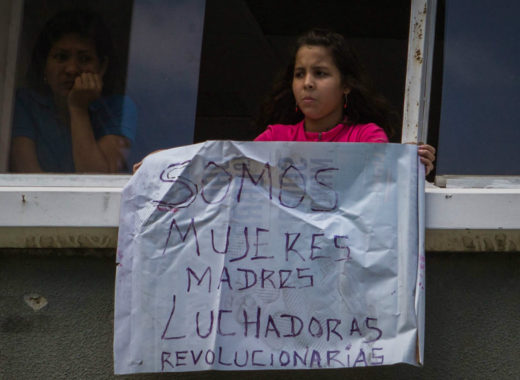 SOMOS
MUJERES
MADRES
LUCHADORAS
REVOLUCIONARIAS